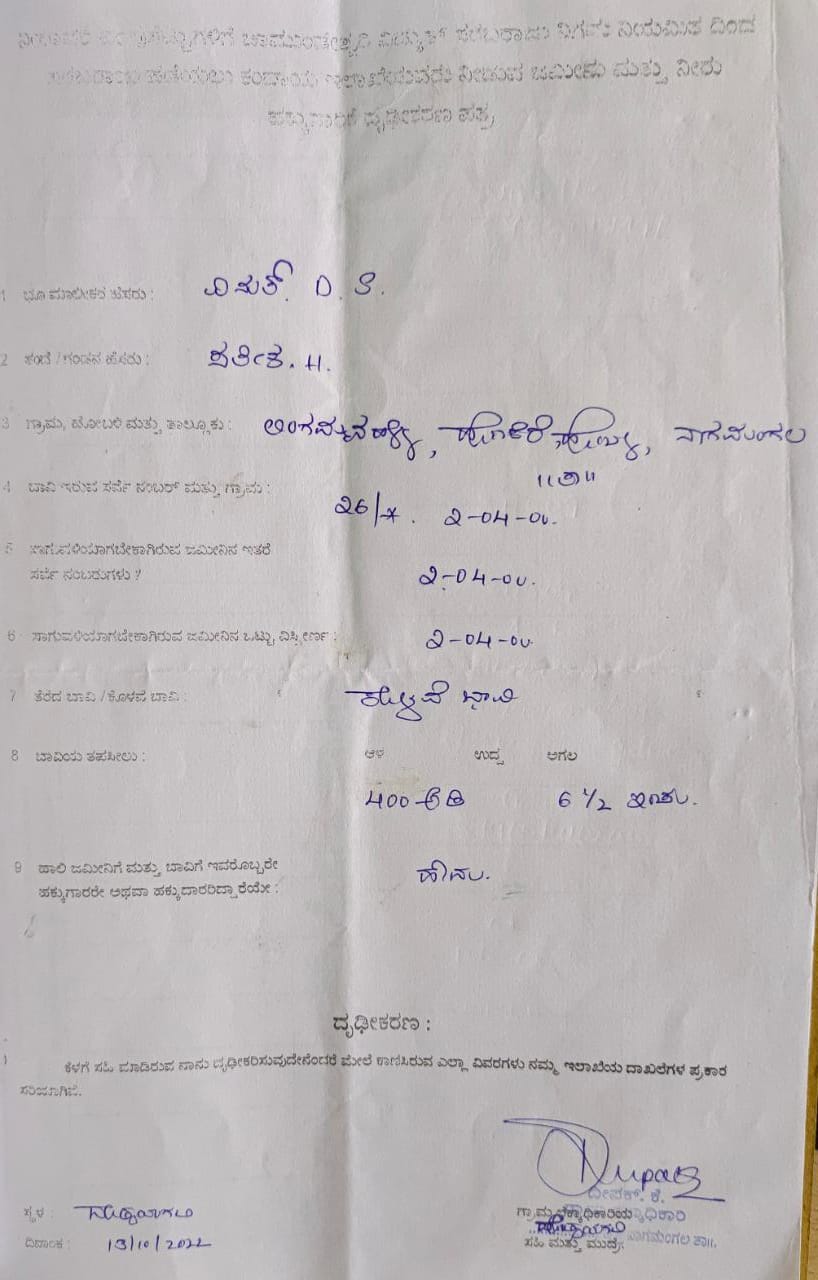 ನೀರಾವರಿ ಪಂಪ್‌ಸೆಟ್ಟುಗಳಿಗೆ ಚಾಮುಂಡೇಶ್ವರಿ ವಿದ್ಯುತ್ ಸರಬರಾಜು ನಿಗಮ ನಿಯಮಿತ ದಿಂದ
ಪಡೆಯಲು ಕಂದಾಯ ಇಲಾಖೆಯವರು ನೀಡುವ ಜಮೀನು ಮತ್ತು ನೀರು
ಹಕ್ಕುದಾರಿಕೆ ದೃಢೀಕರಣ ಪತ್ರ
1 ಭೂ ಮಾಲೀಕರ ಹೆಸರು : D. S.
2 ತಂದೆ / ಗಂಡನ ಹೆಸರು : H.
3 ಗ್ರಾಮ, ಹೋಬಳಿ ಮತ್ತು ತಾಲ್ಲೂಕು : ನಾಗಮಂಗಲ
4 ಬಾವಿ ಇರುವ ಸರ್ವೆ ನಂಬರ್ ಮತ್ತು ಗ್ರಾಮ : 26/*. 2-04-00.
5 ಸಾಗುವಳಿಯಾಗಬೇಕಾಗಿರುವ ಜಮೀನಿನ ಇತರೆ
ಸರ್ವೆ ನಂಬರುಗಳು ? 2-04-00.
6 ಸಾಗುವಳಿಯಾಗಬೇಕಾಗಿರುವ ಜಮೀನಿನ ಒಟ್ಟು ವಿಸ್ತೀರ್ಣ : 2-04-00.
7 ತೆರೆದ ಬಾವಿ / ಕೊಳವೆ ಬಾವಿ : ಕೊಳವೆ ಬಾವಿ
8 ಬಾವಿಯ ತಪಸೀಲು : ಆಳ ಉದ್ದ ಅಗಲ
400 ಅಡಿ 6 1/2 ಇಂಚು.
9 ಹಾಲಿ ಜಮೀನಿಗೆ ಮತ್ತು ಬಾವಿಗೆ ಇವರೊಬ್ಬರೇ
ಹಕ್ಕುಗಾರರೇ ಅಥವಾ ಹಕ್ಕುದಾರರಿದ್ದಾರೆಯೇ : ಹೌದು.
ದೃಢೀಕರಣ :
ಕೆಳಗೆ ಸಹಿ ಮಾಡಿರುವ ನಾನು ದೃಢೀಕರಿಸುವುದೇನೆಂದರೆ ಮೇಲೆ ಕಾಣಿಸಿರುವ ಎಲ್ಲಾ ವಿವರಗಳು ನಮ್ಮ ಇಲಾಖೆಯ ದಾಖಲೆಗಳ ಪ್ರಕಾರ
ಸರಿಯಾಗಿದೆ.
ದೀಪಕ್. ಕೆ.
ಸ್ಥಳ :
ದಿನಾಂಕ : 13/10/2022
ನಾಗಮಂಗಲ ತಾ||.
ಸಹಿ ಮತ್ತು ಮುದ್ರೆ